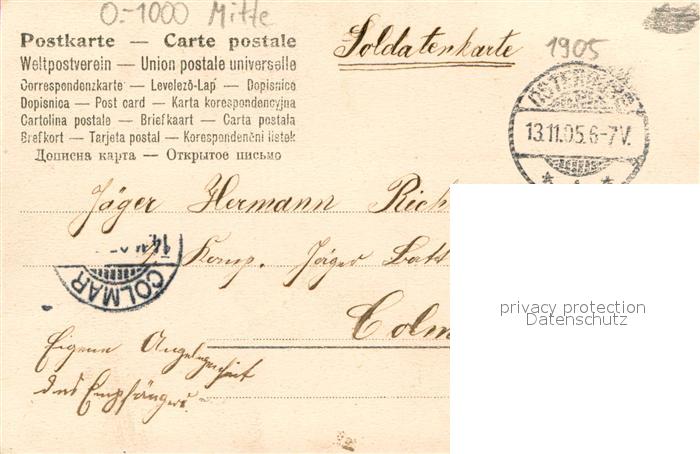 0.-1000 Mitte
Postkarte — Carte postale
Weltpostverein — Union postale universelle
Correspondenzkarte — Levelező-Lap — Dopisnice
Dopisnica — Post card — Karta korespondencyjna
Cartolina postale — Briefkaart — Carta postala
Brefkort — Tarjeta postal — Korespondenčni listek
Дописна карта — Открытое письмо
Soldatenkarte
1905
13.11.05.6-7V.
Jäger Hermann Rich
Komp. Jäger Batt
COLMAR
Colm
Eigene Angelegenheit
des Empfängers.
privacy protection
Datenschutz